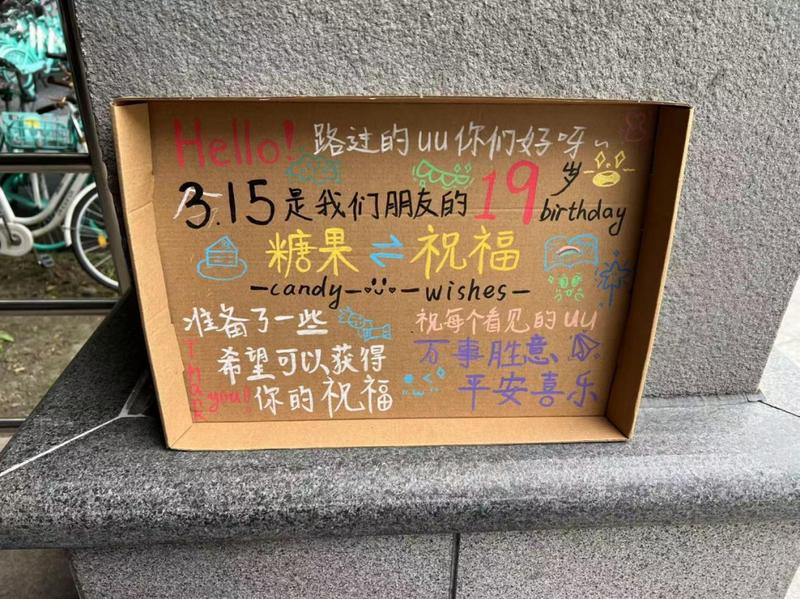 Hello! 路过的uu你们好呀~
3.15是我们朋友的19岁birthday
糖果⇌祝福
-candy- -wishes-
准备了一些
希望可以获得
你的祝福
Thank you!
祝每个看见的uu
万事胜意
平安喜乐